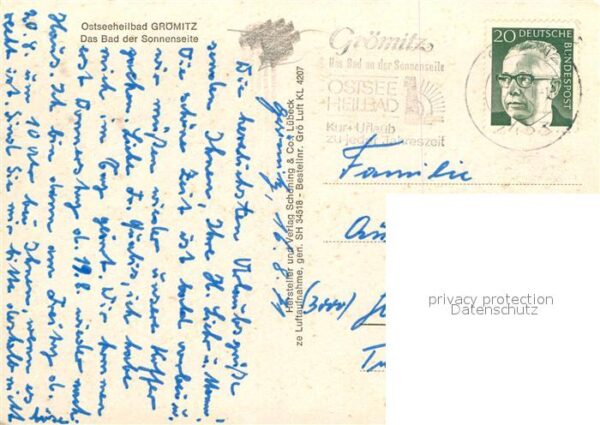 Ostseeheilbad GRÖMITZ
Das Bad der Sonnenseite
Grömitz
Das Bad an der Sonnenseite
OSTSEE
HEILBAD
Kur + Urlaub
zu jeder Jahreszeit
20 DEUTSCHE
BUNDESPOST
Hersteller und Verlag Schöning & Co., Lübeck
ze Luftaufnahme, gen. SH 34518 - Bestellnr. Grö Luft KL 4207
Die herzlichsten Urlaubsgrüße
senden Ihnen, Ihre H. u.
Die schöne Zeit ist bald vorbei u.
wir müßen wieder unsere Koffer
packen. Liebe ich habe
mich im geirrt. Wir kommen
erst Donnerstag d. 19.8. wieder nach
Haus. Ich bin dann am Freitag d.
20.8. um 10 Uhr bei Ihnen, wenn es
recht ist. Sind Sie mir bitte deshalb nicht
Familie
(3000)
privacy protection
Datenschutz